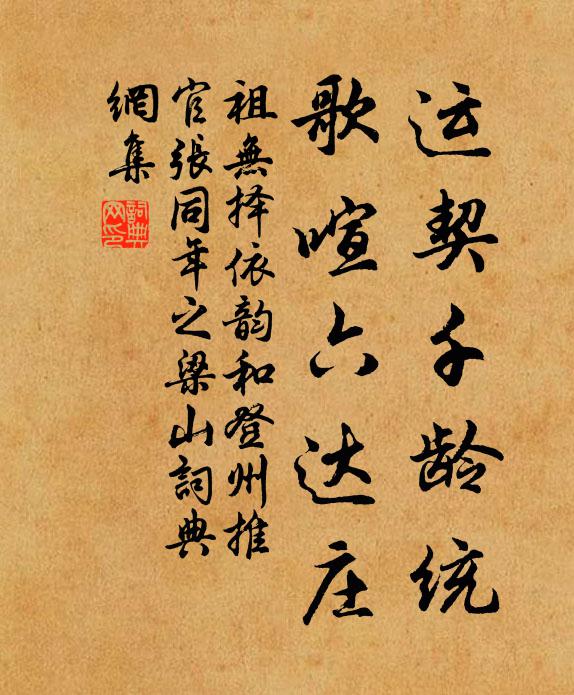 运契千龄统
歌喧六达庄
祖無择依韵和登州推
官張同年之梁山詞典
網集
詞典网印